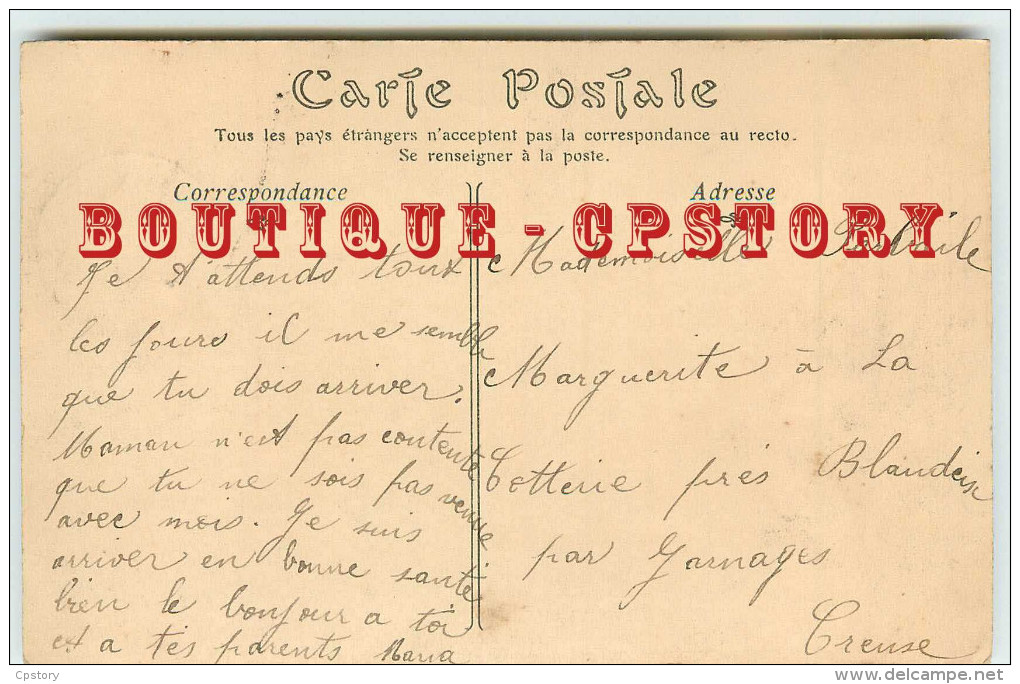 Carte Postale
Tous les pays étrangers n'acceptent pas la correspondance au recto.
Se renseigner à la poste.
Correspondance
Adresse
BOUTIQUE - CPSTORY
Je t'attends toux
les jours il me semble
que tu dois arriver.
Maman n'est pas contente
que tu ne sois pas venue
avec mois. Je suis
arriver en bonne santé
bien le bonjour a toi
et a tes parents Maria
Mademoiselle
Marguerite à La
Cotterie près Blandeix
par Jarnages
Creuse
Cpstory
delcampe.net